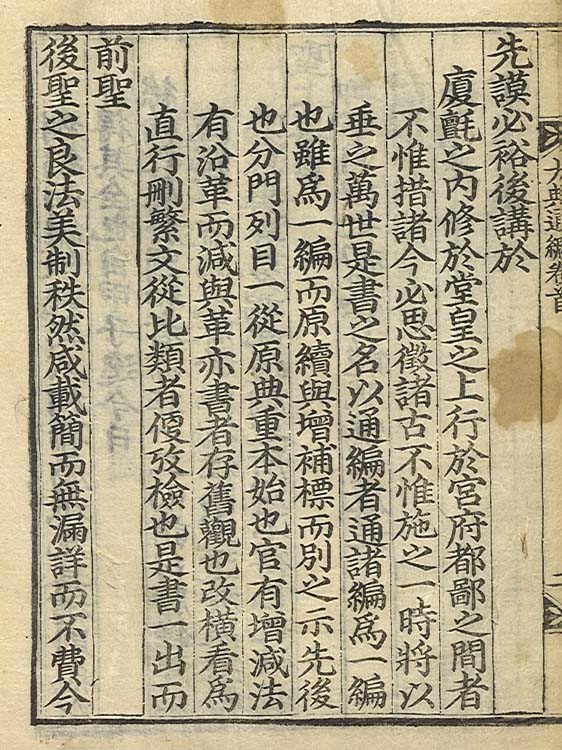 大典通編卷首
一
先謨必裕後講於
廈氈之內修於堂皇之上行於宮府都鄙之間者
不惟措諸今必思徵諸古不惟施之一時將以
垂之萬世是書之名以通編者通諸編爲一編
也雖爲一編而原續與增補標而別之示先後
也分門列目一從原典重本始也官有增減法
有沿革而減與革亦書者存舊觀也改橫看爲
直行刪繁文從比類者便攷檢也是書一出而
前聖
後聖之良法美制秩然咸載簡而無漏詳而不費今